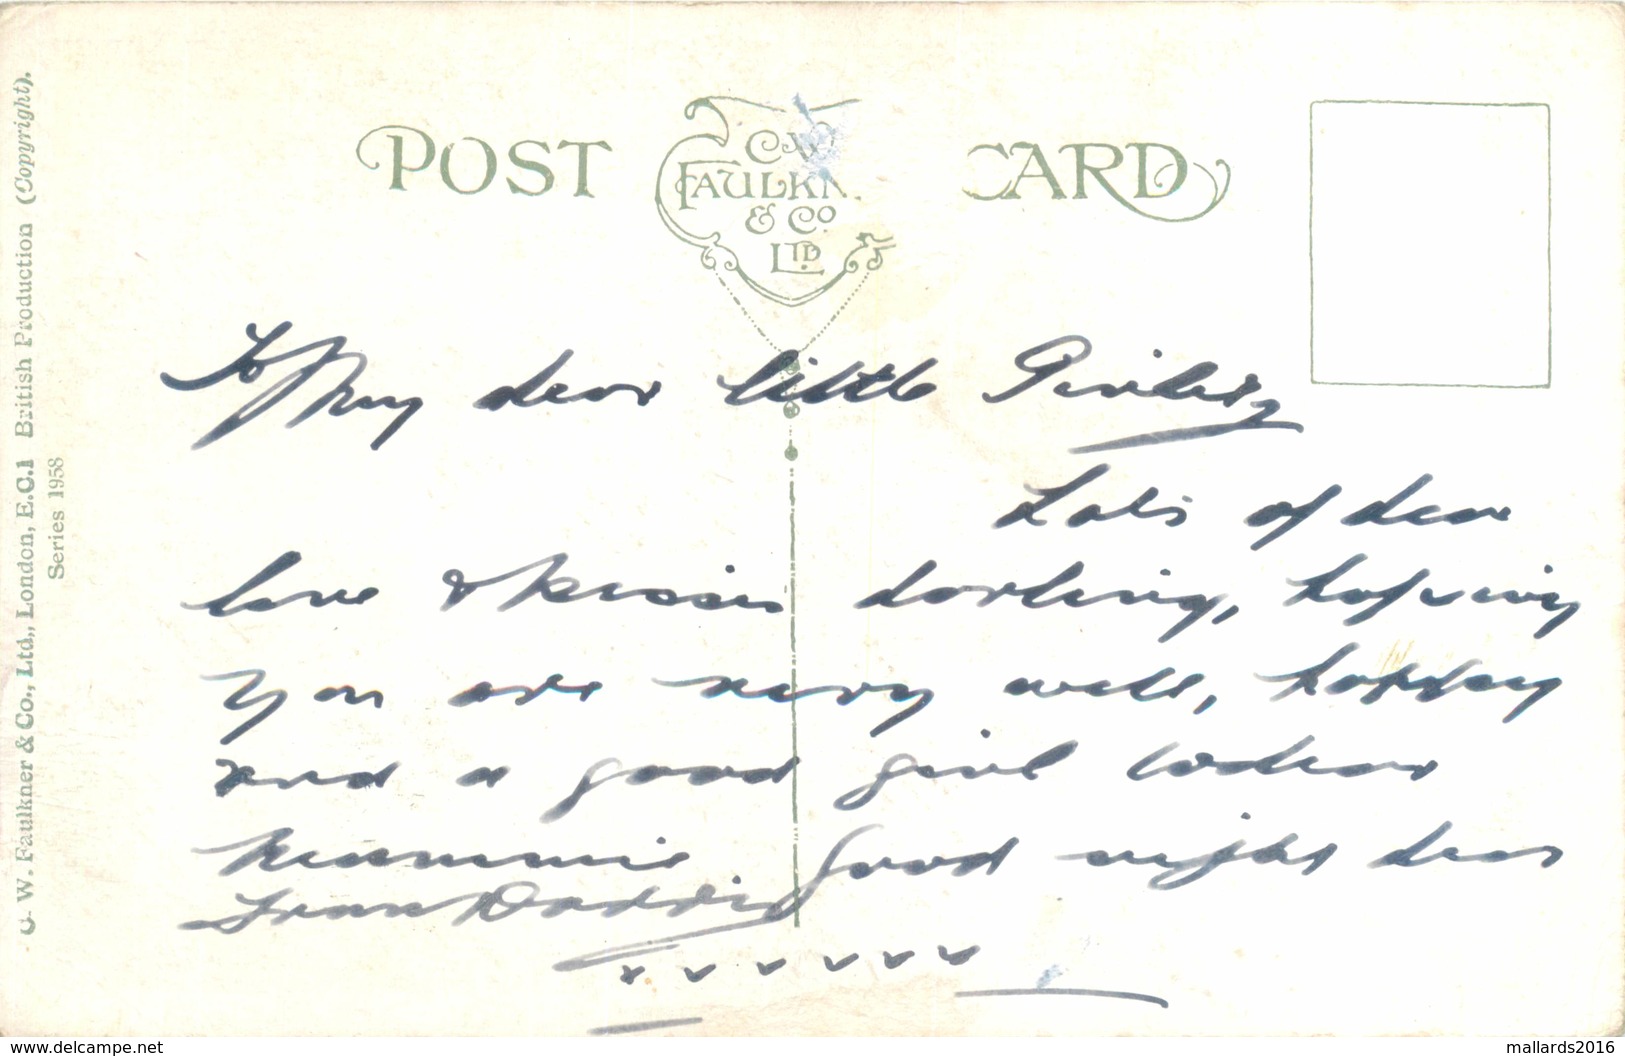 POST CARD
C.W.
FAULKN
& Co.
LTD.
C. W. Faulkner & Co., Ltd., London, E.C.1 British Production (Copyright).
Series 1958
To My dear little
Lots of dear
love & kisses darling, hopeing
you are very well, happy
and a good girl to dear
Mummie Good night dear
From Daddie
x x x x x x x
www.delcampe.net
mallards2016